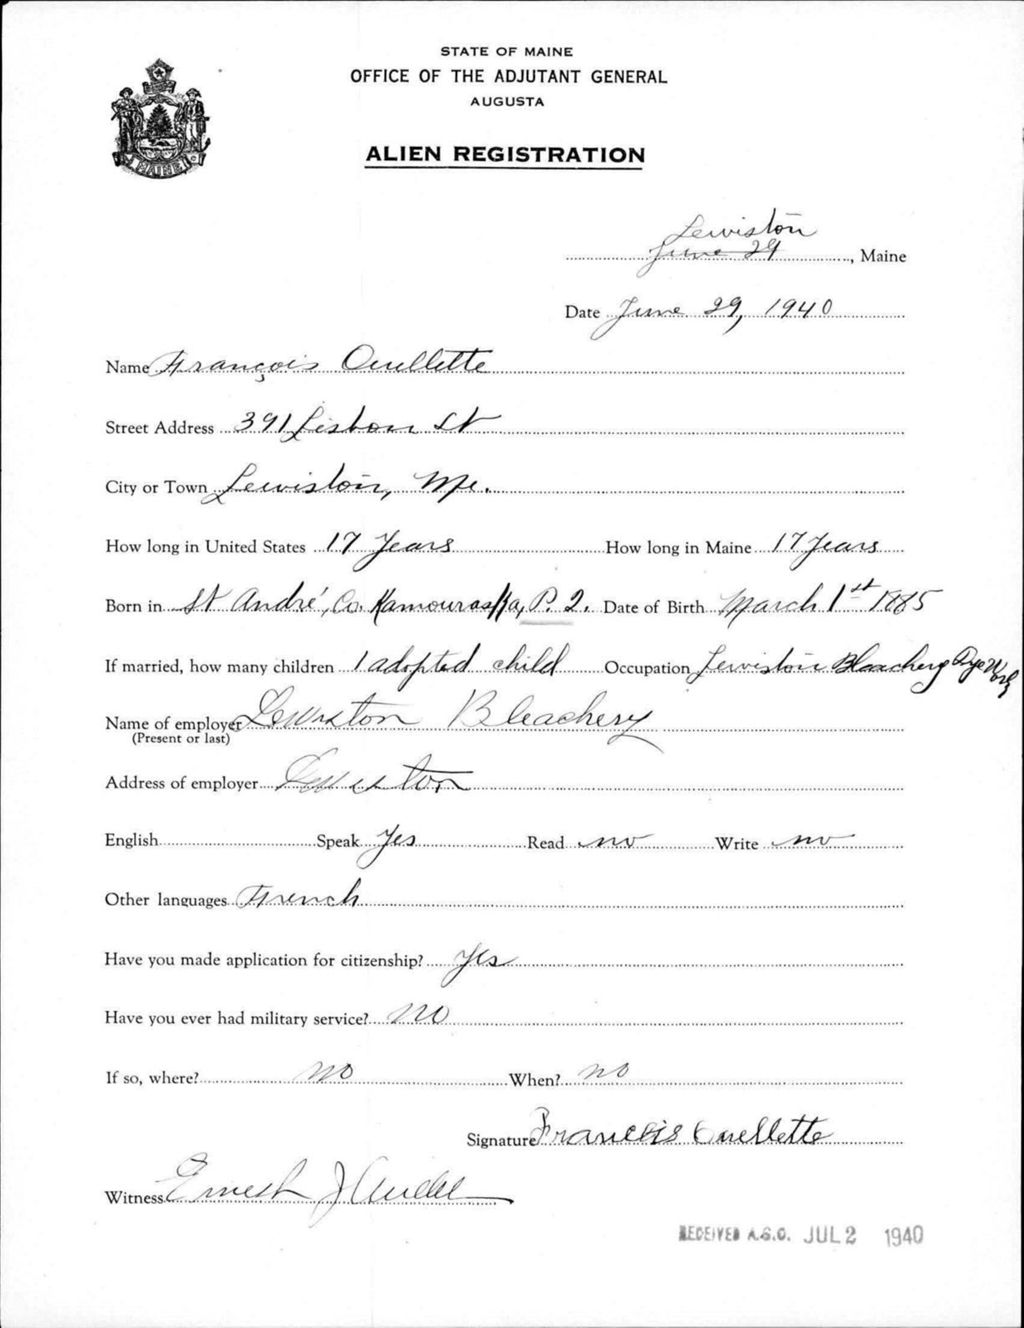 STATE OF MAINE
OFFICE OF THE ADJUTANT GENERAL
AUGUSTA
ALIEN REGISTRATION
MAINE
Lewiston
June 29, Maine
Date June 29, 1940
Name François Ouellette
Street Address 391 Lisbon St
City or Town Lewiston, Me.
How long in United States 17 Years How long in Maine 17 Years
Born in St André, Co. Kamouraska, P. Q. Date of Birth March 1st 1885
If married, how many children 1 adopted child Occupation Lewiston Bleachery Dye Work
Name of employer Lewiston Bleachery
(Present or last)
Address of employer Lewiston
English Speak Yes Read no Write no
Other languages French
Have you made application for citizenship? Yes
Have you ever had military service? No
If so, where? no When? no
Signature Francois Ouellette
Witness Ernest J
RECEIVED A.G.O. JUL 2 1940